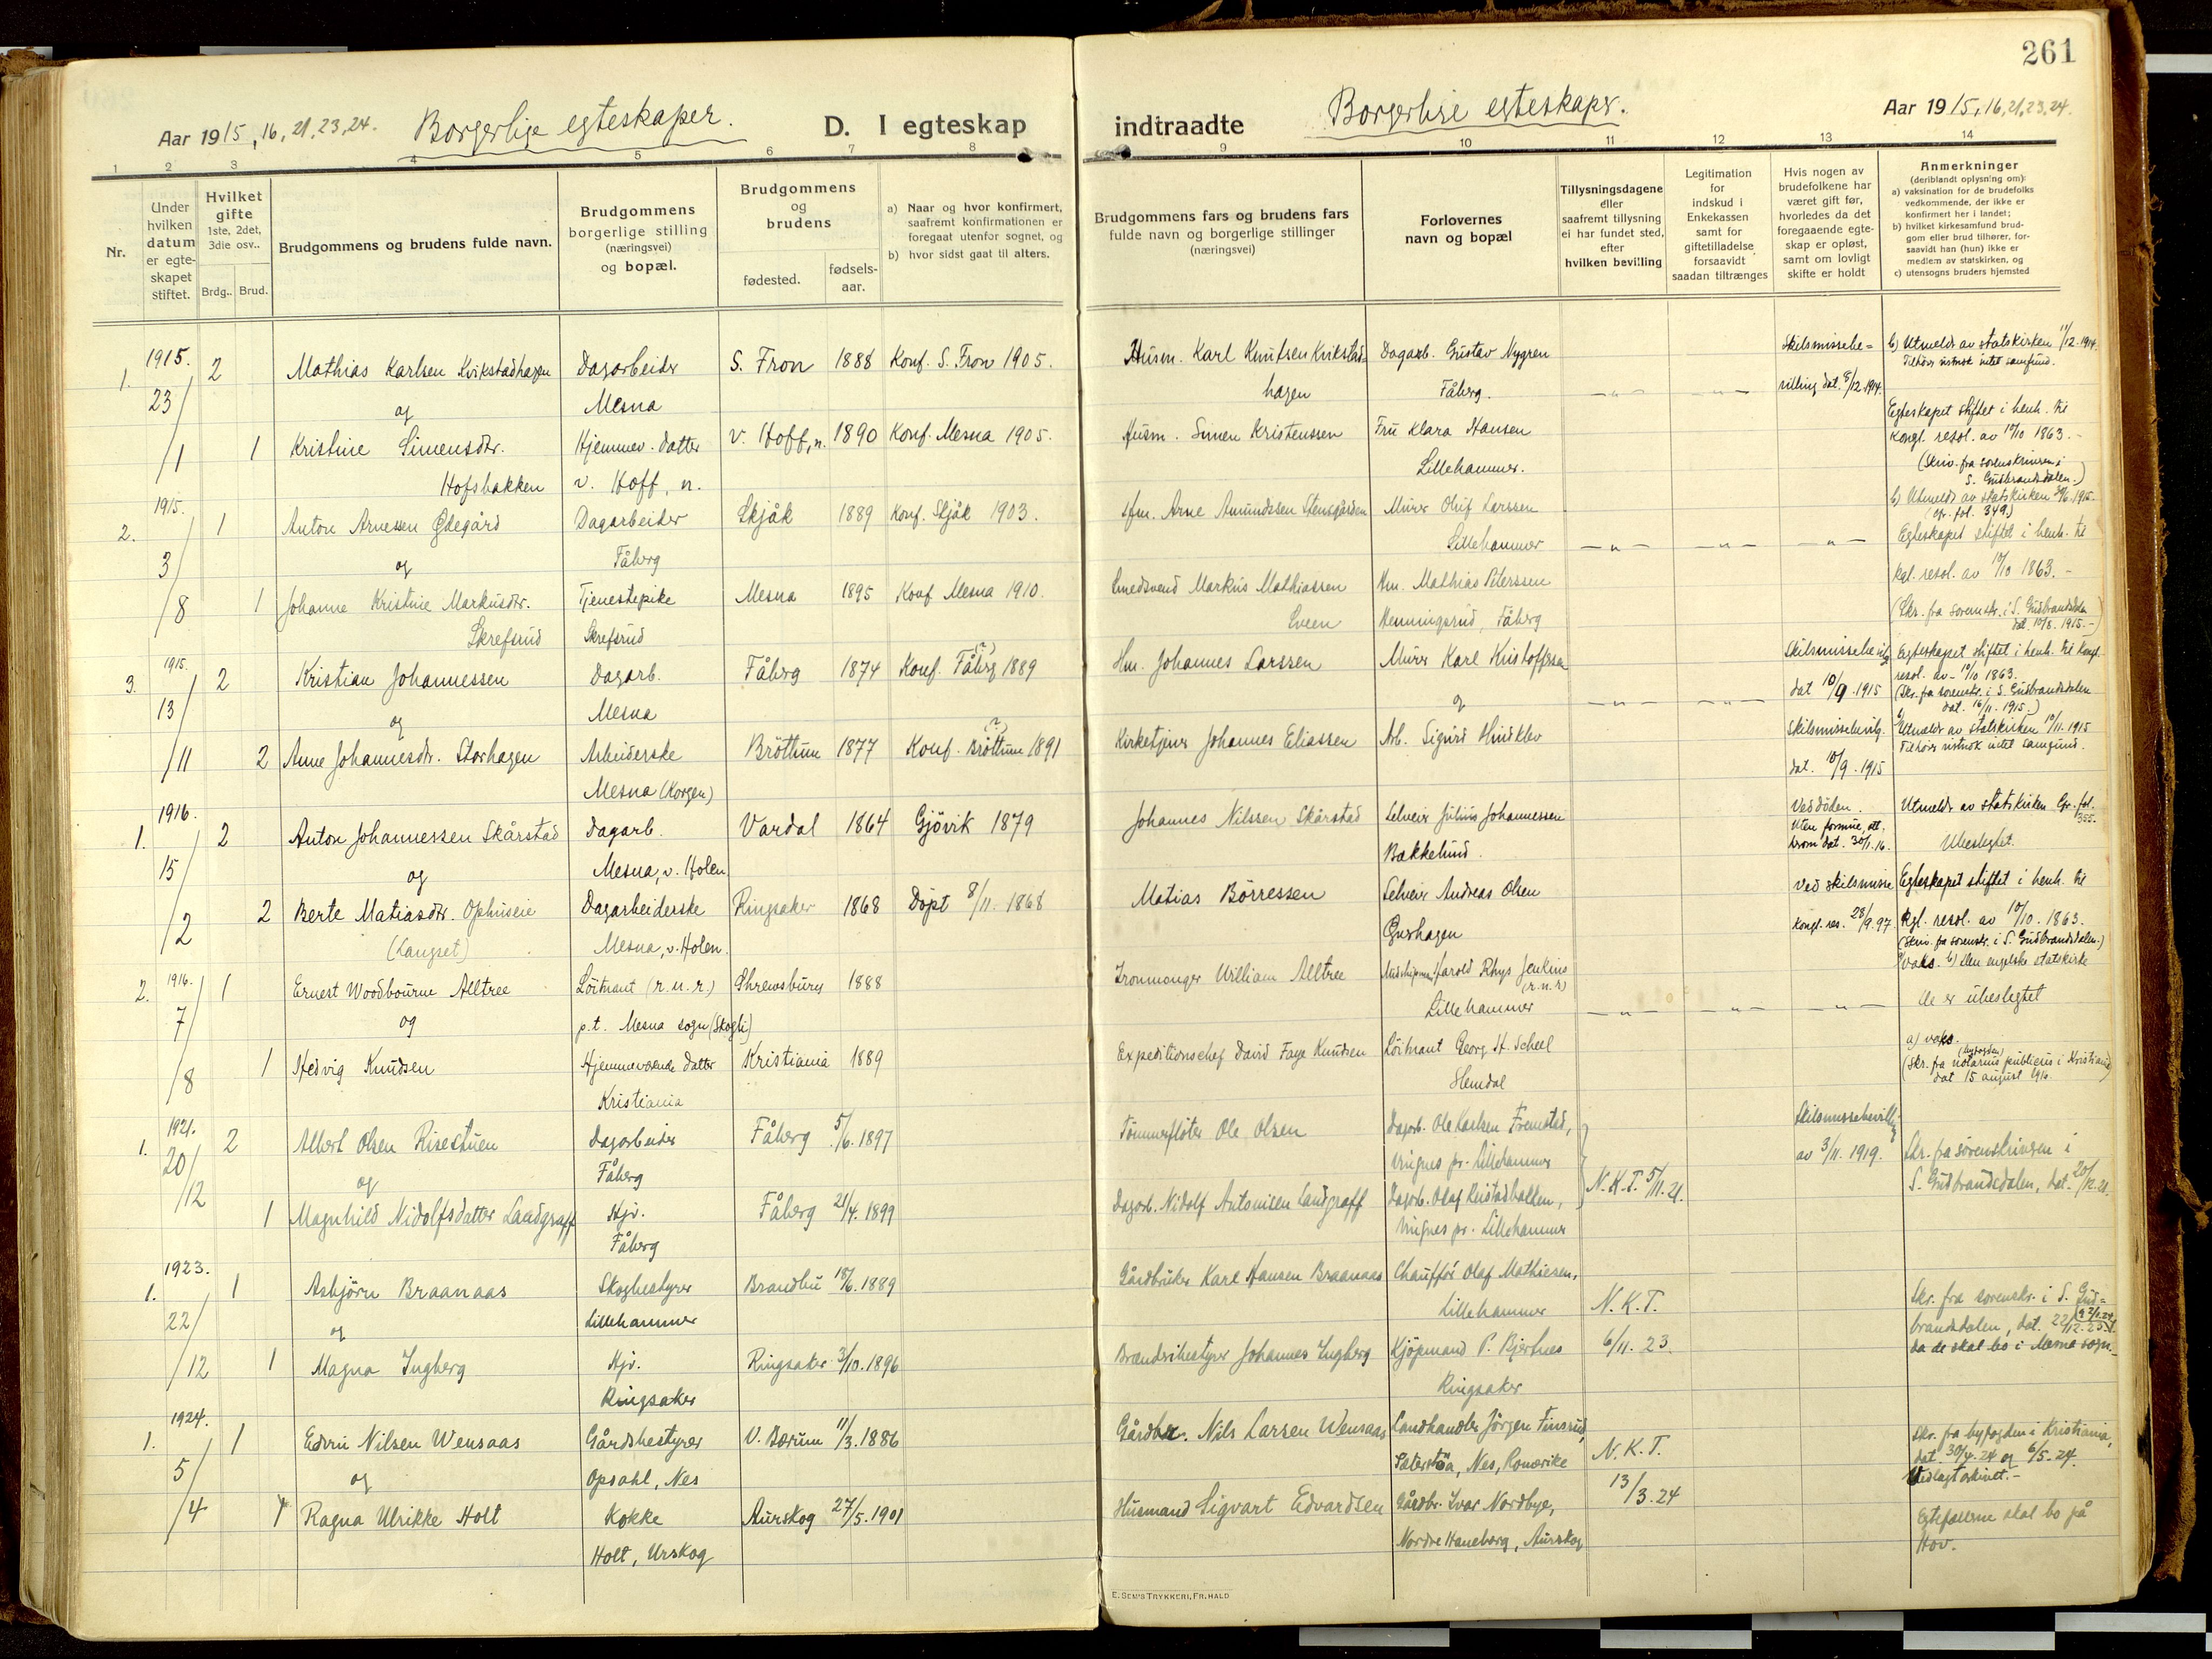 261
Aar 1915, 16, 21, 23, 24.
Borgerlige egteskaper.
D. I egteskap
indtraadte
Borgerlige egteskaper.
Aar 1915, 16, 21, 23, 24.
1 2 3 4 5 6 7 8 9 10 11 12 13 14
Nr.
Under hvilken datum er egteskapet stiftet.
Hvilket gifte 1ste, 2det, 3die osv..
Brdg.. Brud.
Brudgommens og brudens fulde navn.
Brudgommens borgerlige stilling (næringsvei) og bopæl.
Brudgommens og brudens
fødested.
fødsels-aar.
a) Naar og hvor konfirmert, saafremt konfirmationen er foregaat utenfor sognet, og
b) hvor sidst gaat til alters.
Brudgommens fars og brudens fars fulde navn og borgerlige stillinger (næringsvei)
Forlovernes navn og bopæl
Tillysningsdagene eller saafremt tillysning ei har fundet sted, efter hvilken bevilling
Legitimation for indskud i Enkekassen samt for giftetilladelse forsaavidt saadan tiltrænges
Hvis nogen av brudefolkene har været gift før, hvorledes da det foregaaende egteskap er opløst, samt om lovligt skifte er holdt
Anmerkninger (deriblandt oplysning om):
a) vaksination for de brudefolks vedkommende, der ikke er konfirmert her i landet;
b) hvilket kirkesamfund brudgom eller brud tilhører, forsaavidt han (hun) ikke er medlem av statskirken, og
c) utensogns bruders hjemsted
1. 1915. 23/1 2 Mathias Karlsen Kvikstadhagen Dagarbeider Mesna S. Fron 1888 Konf. S. Fron 1905.
Husm. Karl Knutsen Kvikstadhagen Dagarb. Gustav Nygren Fåberg. —„— —„— Skilsmissebevilling dat. 8/12 1914. b) Utmeldt av statskirken 11/12-1914. Tilhører vistnok intet samfund.
og
1 Kristine Simensdtr. Hofsbakken Hjemmev. datter v. Hoff, n. v. Hoff, n. 1890 Konf. Mesna 1905.
Husm. Simen Kristenssen Fru Klara Hansen Lillehammer. Egteskapet stiftet i henh. til kongl. resol. av 10/10 1863.- (Skriv. fra sorenskriveren i S. Gudbrandsdalen.)
2. 1915. 3/8 1 Anton Arnessen Ødegård Dagarbeider Fåberg Skjåk 1889 Konf. Skjåk 1903.
Hm. Arne Amundssen Stensgården Murer Oluf Larssen Lillehammer —„— —„— —„— b) Utmeldt av statskirken 24/6 1915. (cfr. fol. 349.) Egteskapet stiftet i henh. til
og
1 Johanne Kristine Markusdtr. Skrefsrud Tjenestepike Skrefsrud Mesna 1895 Konf Mesna 1910.
Smedsvend Markus Mathiassen Sveen Hm. Mathias Peterssen Henningsrud, Fåberg kgl. resol. av 10/10 1863.- (Skr. fra sorenskr. i S. Gudbrandsdalen dat. 10/8. 1915.-)
3. 1915. 13/11 2 Kristian Johannessen Dagarb. Mesna Fåberg 1874 Konf. Fåberg (?) 1889
Hm. Johannes Larssen Murer Karl Kristoffersen og —„— —„— Skilsmissebevilg dat 10/9 1915 Egteskapet stiftet i henh. til kongl. resol. av 10/10 1863. (Skr. fra sorenskr. i S. Gudbrandsdalen dat. 16/11. 1915.)
og
2 Anne Johannesdtr. Storhagen Arbeiderske Mesna (Korgen) Bröttum 1877 Konf. Bröttum (?) 1891
Kirketjener Johannes Eliassen Arb. Sigurd Hindklev Skilsmissebevilg. dat. 10/9. 1915 b) Utmeldt av statskirken 10/11. 1915 Tilhører vistnok intet samfund.
1. 1916. 15/2 2 Anton Johannessen Skårstad Dagarb. Mesna, v. Holen Vardal 1864 Gjövik 1879
Johannes Nilssen Skårstad Selveier Julius Johannessen Bakkelund. Ved döden. Uten formue, att. dat. 30/1. 16. Utmeldt av statskirken Cfr. fol. 355. Ubeslegtet.
og
2 Berte Matiasdtr. Ophuseie (Langset) Dagarbeiderske Mesna, v. Holen. Ringsaker 1868 Döpt 8/11. 1868
Matias Börressen Selveier Andreas Olsen Ved skilsmisse kongl. res. 28/9. 97. Egteskapet stiftet i henh. til kgl. resol. av 10/10. 1863. (Skriv. fra sorenskr. i S. Gudbrandsdalen.)
2. 1916. 7/8 1 Ernest Woodbourne Alltree Löitnant (r. n. r.) p.t. Mesna sogn (Skogli) Shrewsbury 1888
Ironmonger William Alltree Midshipman Harold Rhys Jenkins (r. n. r) Lillehammer —„— —„— —„— a) vaks. b) Den engelske statskirke De er ubeslegtet
og
1 Hedvig Knudsen Hjemmeværende datter Kristiania Kristiania 1889
Expeditionschef David Faye Knudsen Löitnant Georg H. Scheel Hemdal a) vaks. (Skr. fra notarius publicus (byfogden) i Kristiania dat 15 august 1916.)
1. 1921. 20/12 2 Albert Olsen Risestuen Dagarbeider Fåberg Fåberg 5/6. 1897
Tömmerflöter Ole Olsen Dagarb. Ole Karlsen Fremstad, Vingnes pr. Lillehammer N. K. T. 5/11. 21. Skilsmissebevilling av 3/11. 1919. Skr. fra sorenskriveren i S. Gudbrandsdalen, dat. 20/12. 21.
og
1 Magnhild Nidolfsdatter Landgraff Hjv. Fåberg Fåberg 21/4. 1899
Dagarb. Nidolf Antonisen Landgraff Dagarb. Olaf Rustadbakken, Vingnes pr. Lillehammer
1. 1923. 22/12 1 Asbjörn Braanaas Skogbestyrer Lillehammer Brandbu 18/6. 1889
Gårdbruker Karl Hansen Braanaas Chaufför Olaf Mathisen, Lillehammer N. K. T. 6/11. 23. Skr. fra sorenskr. i S. Gudbrandsdalen, dat. 22/12. 23 da de skal bo i Mesna sogn.
og
1 Magna Ingberg Hjv. Ringsaker Ringsaker 3/10. 1896
Brænderibestyrer Johannes Ingberg Kjöpmand P. Bjerknes Ringsaker
1. 1924. 5/4 1 Edvin Nilsen Wensaas Gårdsbestyrer Opsahl, Nes V. Bærum 11/3. 1886
Gårdbr. Nils Larsen Wensaas Landhandler Jörgen Finsrud, Sæterstöa, Nes, Romerike N. K. T. 13/3. 24 Skr. fra byfogden i Kristiania, dat. 30/4. 24 og 6/5. 24. Vedlagt arkivet.-
og
1 Ragna Ulrikke Holt Kokke Holt, Urskog Aurskog 27/5. 1901
Husmand Sigvart Edvardsen Gårdbr. Ivar Nordbye, Nordre Haneborg, Aurskog Egtefællerne skal bo på Hov.
E. SEM'S TRYKKERI, FR. HALD